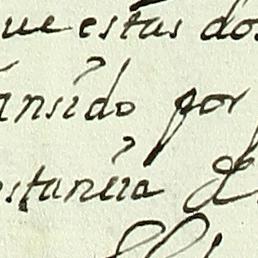 que estas dos
ansido por
estancia